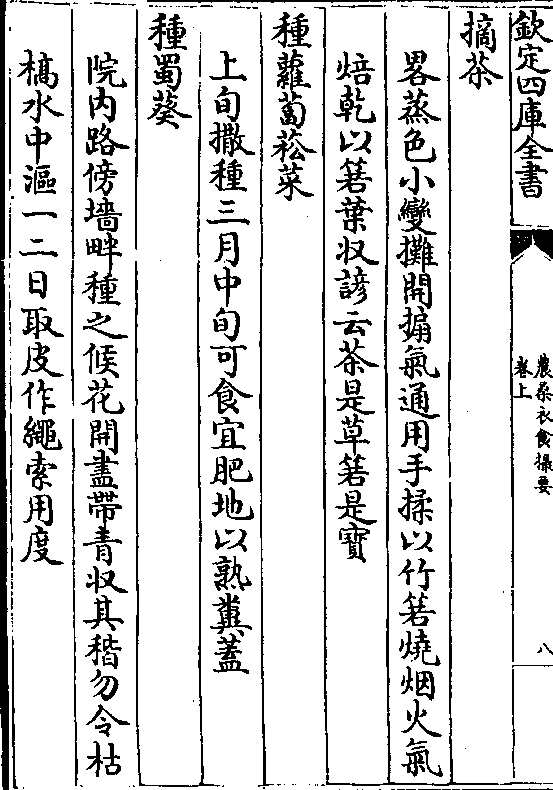 欽定四庫全書
農桑衣食撮要
卷上
八
摘茶
畧蒸色小變攤開搧氣通用手揉以竹箬燒烟火氣
焙乾以箬葉收諺云茶是草箬是寶
種蘿蔔菘菜
上旬撒種三月中旬可食宜肥地以熟糞蓋
種蜀葵
院内路傍墻畔種之候花開盡帶青收其稭勿令枯
槁水中漚一二日取皮作繩索用度